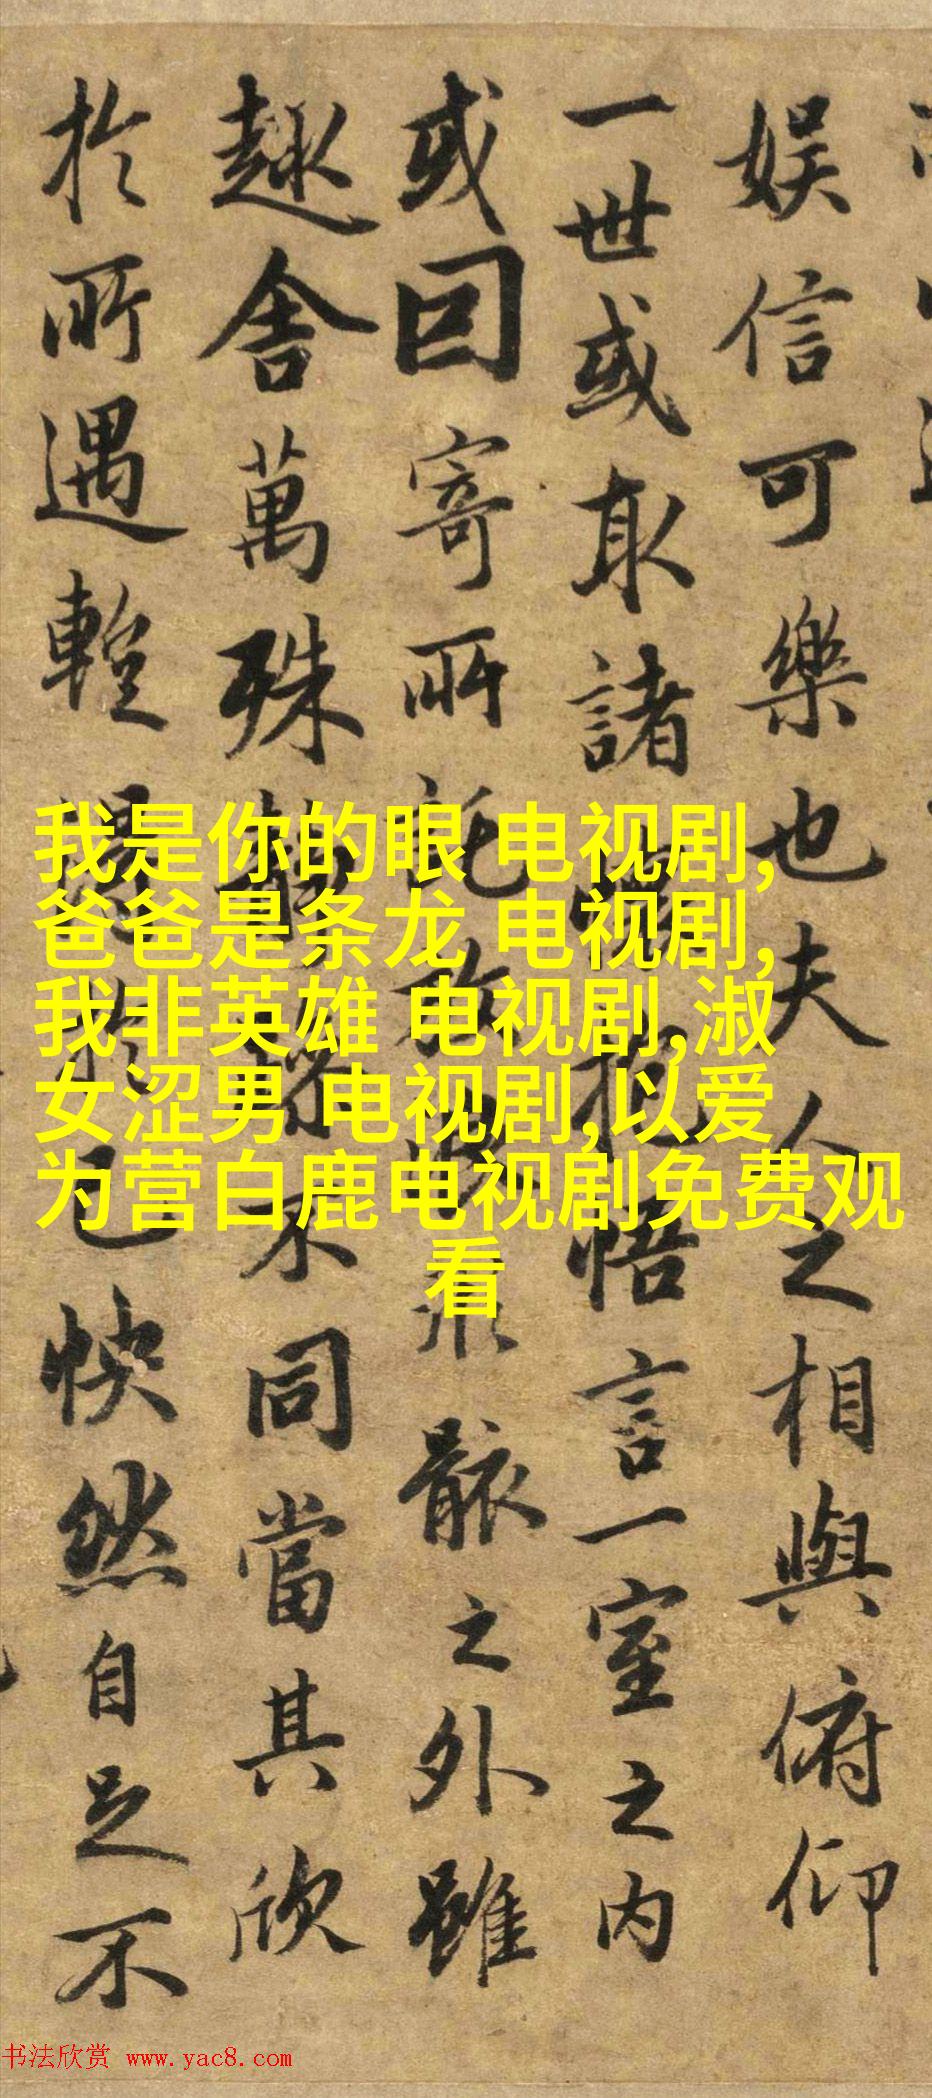 娱信可樂也夫人之相與俯仰
一世或取諸抱悟言一室之内
或因寄所託放形骸之外雖
趣舍萬殊不同當其欣
於所遇蹔得於己怏然自足不
我是你的眼 电视剧,
爸爸是条龙 电视剧,
我非英雄 电视剧,淑
女涩男 电视剧,以爱
为营白鹿电视剧免费观
看
书法欣赏 www.yac8.com